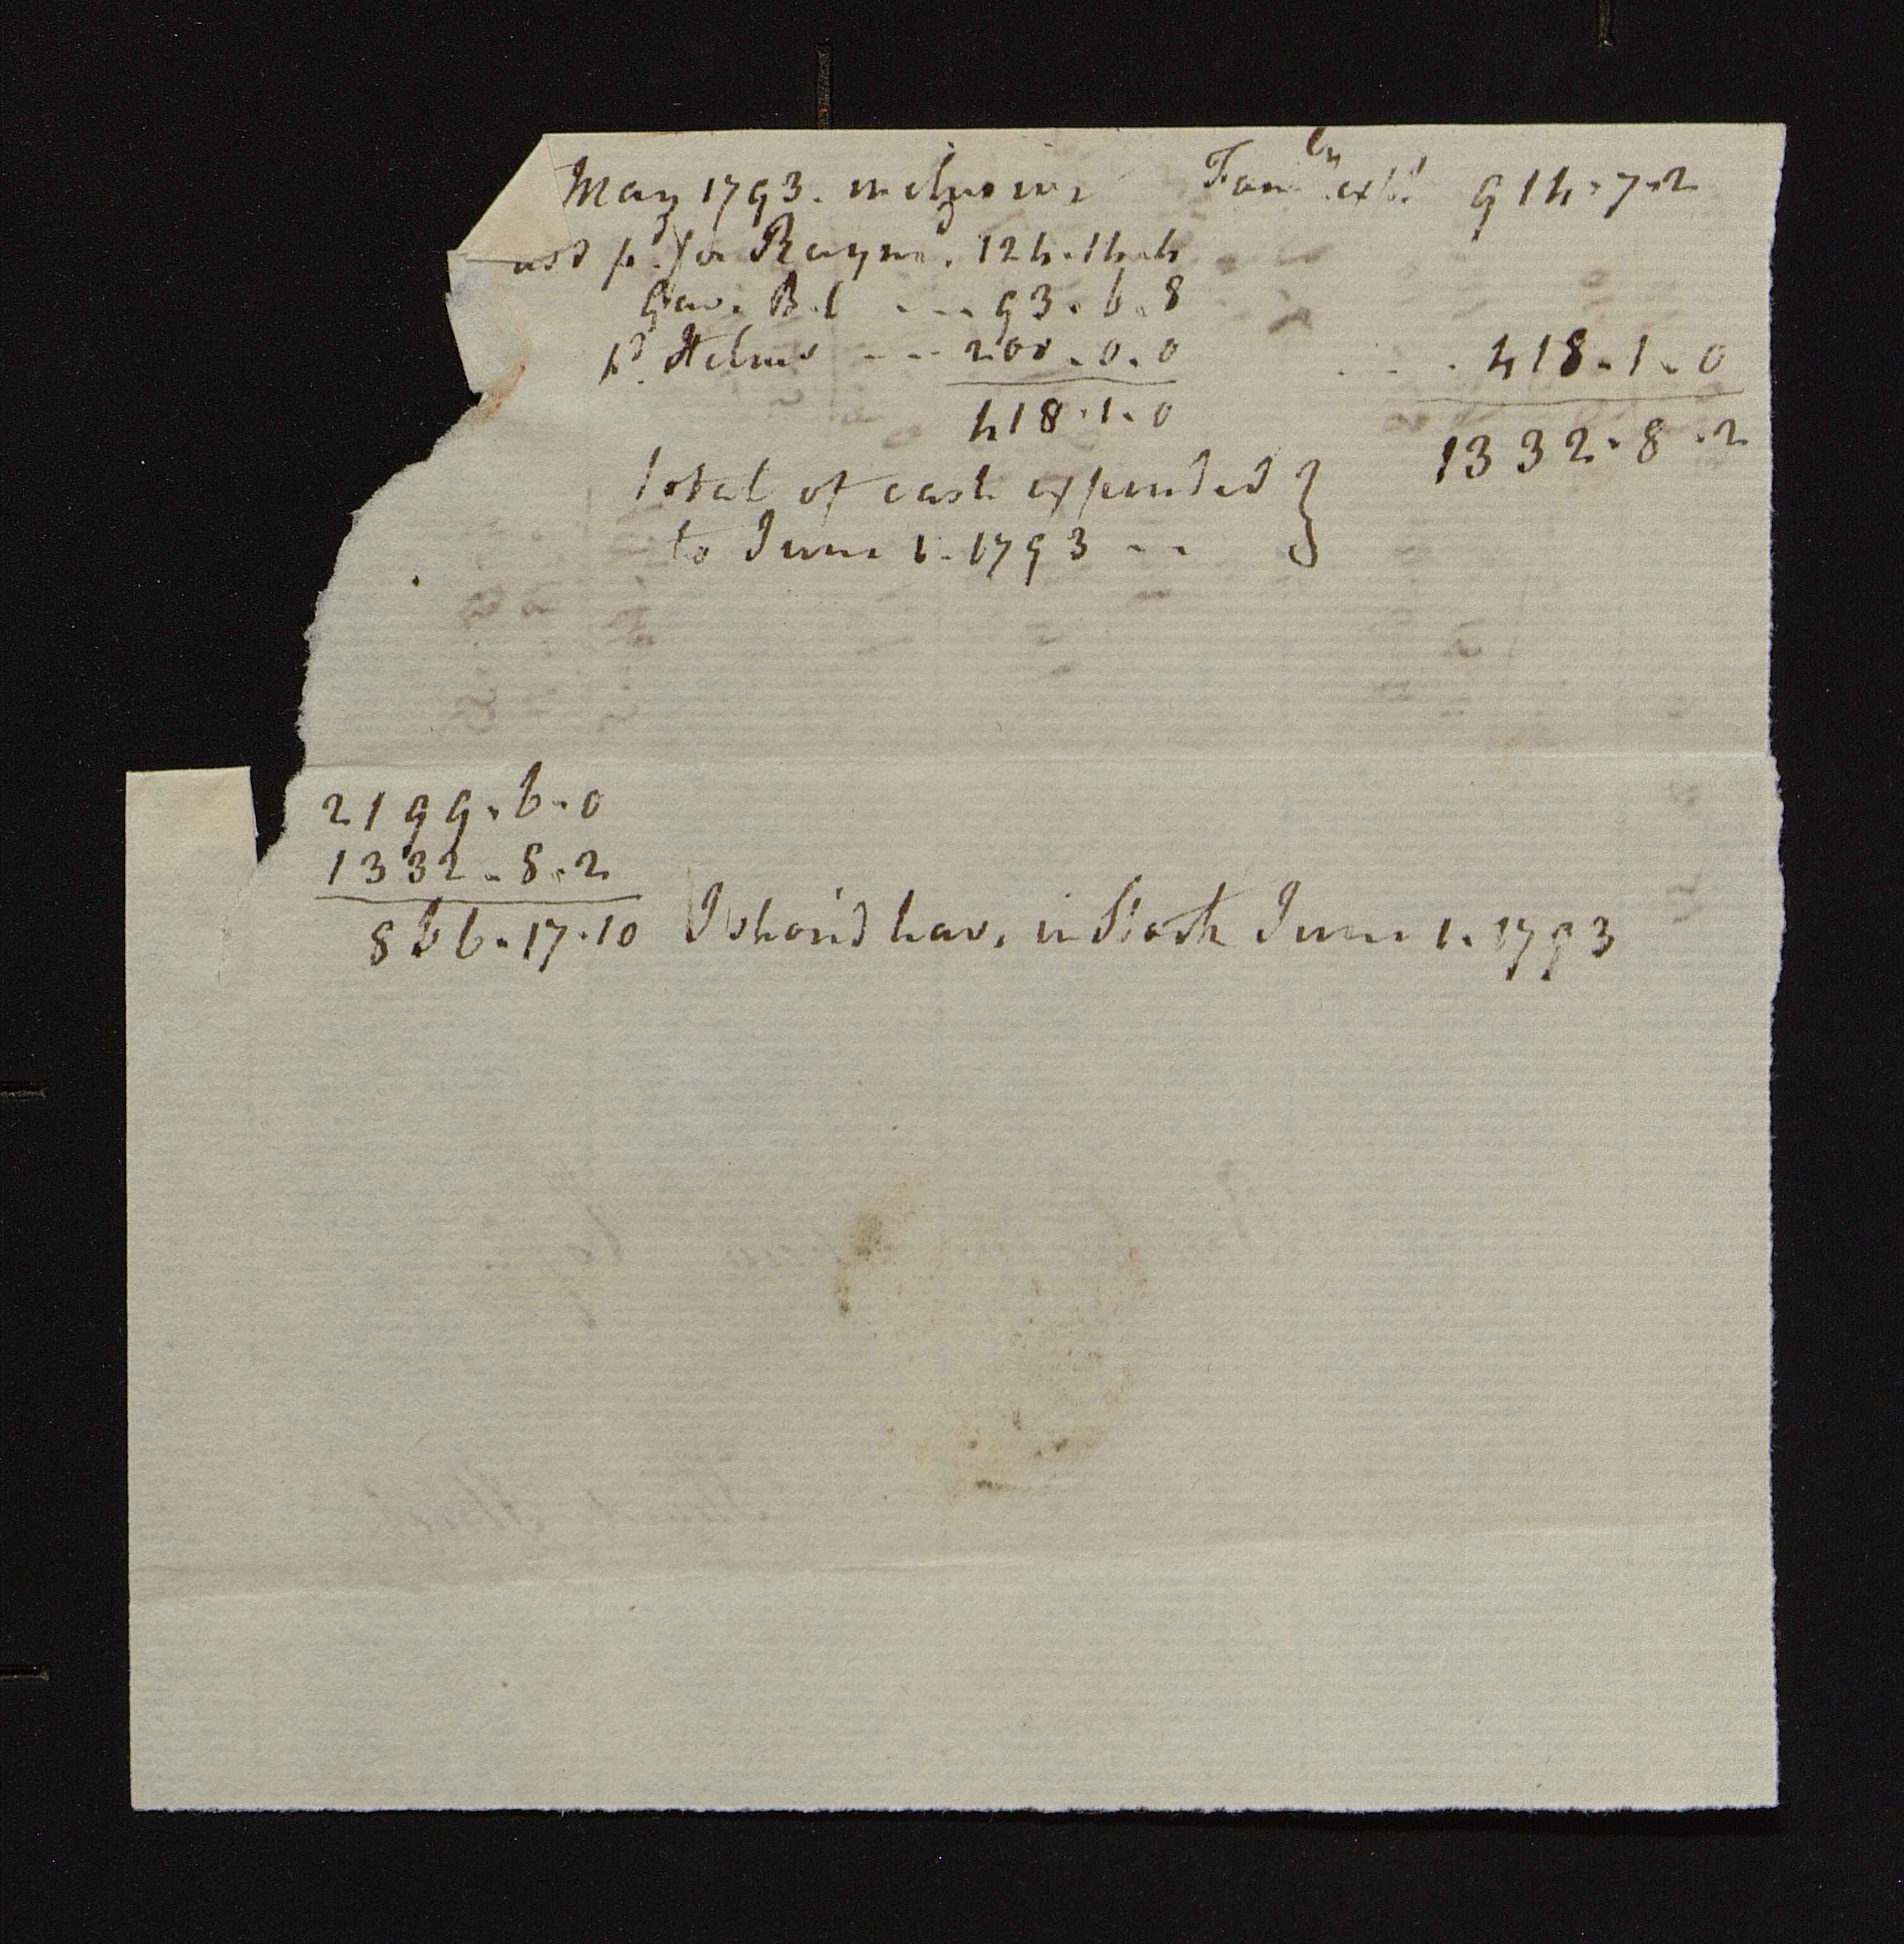 May 1793. inclusive Famly exps. 914.7.2
pd for Raymd. 124.14.4
93.6.8
pd. Helms --- 200.0.0 ... 418.1.0
418.1.0 1332.8.2
total of cash expended }
to June 1. 1793 --
2199.6.0
1332.8.2
866.17.10 I shou'd have in Stock June 1. 1793